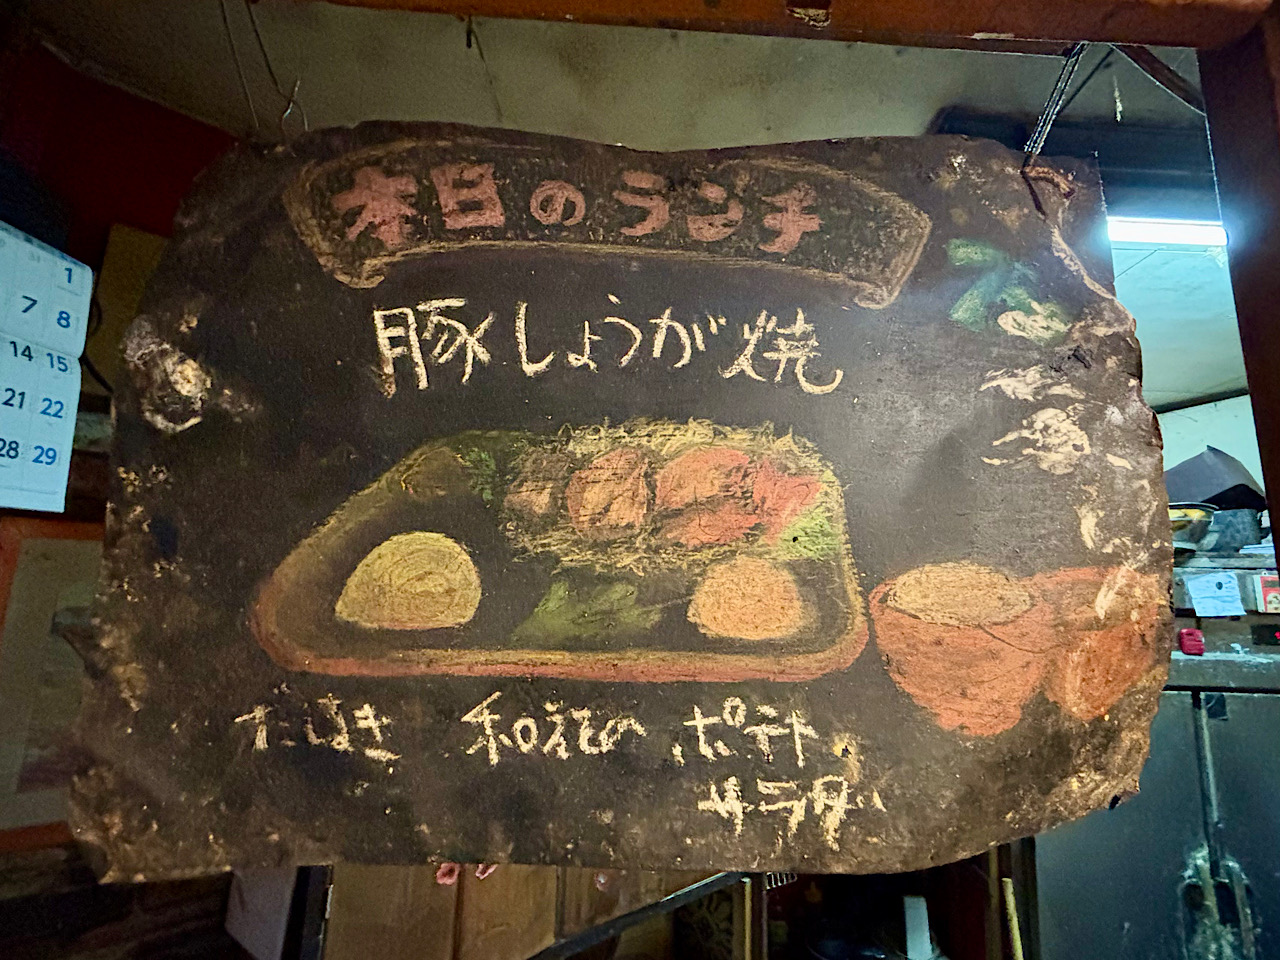 本日のランチ
豚しょうが焼
たまご焼き 和えもの ポテト
サラダ
1
7 8
14 15
21 22
28 29